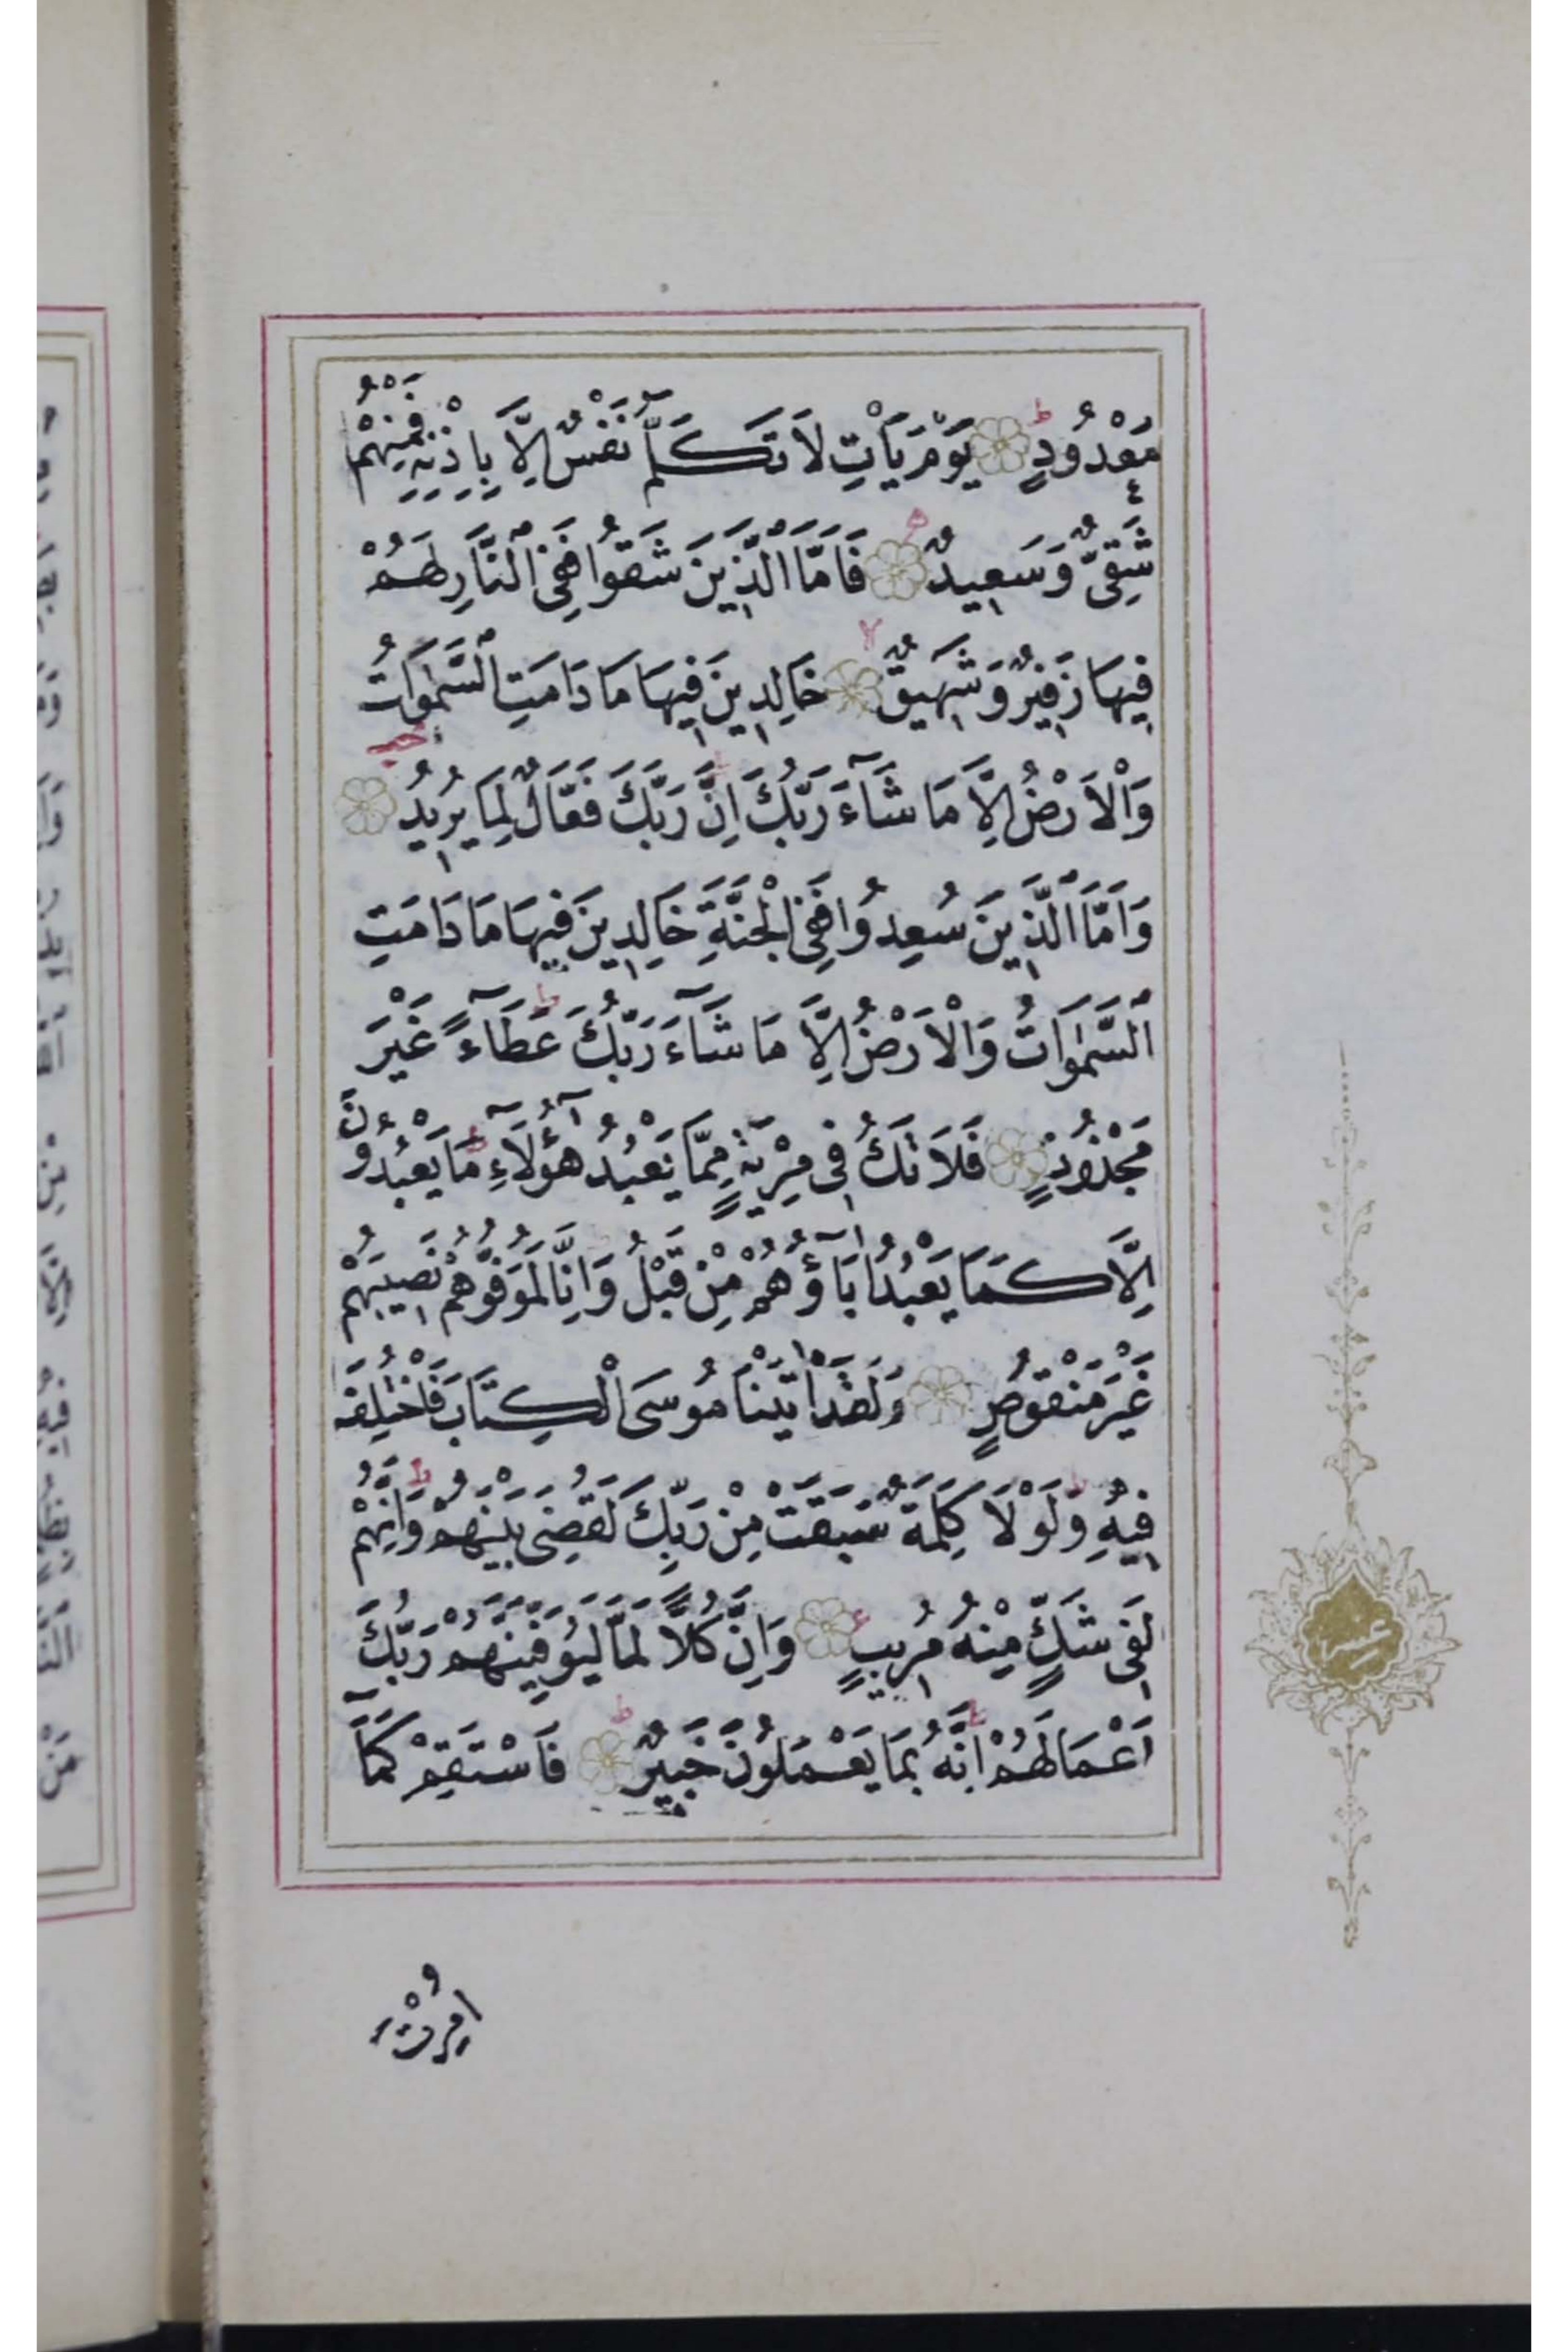 مَعْدُودٍ ط يَوْمَ يَأْتِ لَا تَكَلَّمُ نَفْسٌ اِلَّا بِاِذْنِهٖ فَمِنْهُمْ
شَقِيٌّ وَسَعِيدٌ فَاَمَّا الَّذِينَ شَقُوا فَفِي النَّارِ لَهُمْ
فِيهَا زَفِيرٌ وَشَهِيقٌ لا خَالِدِينَ فِيهَا مَا دَامَتِ السَّمٰوَاتُ
وَالْاَرْضُ اِلَّا مَا شَآءَ رَبُّكَ ط اِنَّ رَبَّكَ فَعَّالٌ لِمَا يُرِيدُ
وَاَمَّا الَّذِينَ سُعِدُوا فَفِي الْجَنَّةِ خَالِدِينَ فِيهَا مَا دَامَتِ
السَّمٰوَاتُ وَالْاَرْضُ اِلَّا مَا شَآءَ رَبُّكَ ط عَطَآءً غَيْرَ
مَجْذُوذٍ فَلَا تَكُ فِي مِرْيَةٍ مِمَّا يَعْبُدُ هٰٓؤُلَآءِ ط مَا يَعْبُدُونَ
اِلَّا كَمَا يَعْبُدُ اٰبَآؤُهُمْ مِنْ قَبْلُ وَاِنَّا لَمُوَفُّوهُمْ نَصِيبَهُمْ
غَيْرَ مَنْقُوصٍ وَلَقَدْ اٰتَيْنَا مُوسَى الْكِتَابَ فَاخْتُلِفَ
فِيهِ ط وَلَوْلَا كَلِمَةٌ سَبَقَتْ مِنْ رَبِّكَ لَقُضِيَ بَيْنَهُمْ ط وَاِنَّهُمْ
لَفِي شَكٍّ مِنْهُ مُرِيبٍ ع وَاِنَّ كُلًّا لَمَّا لَيُوَفِّيَنَّهُمْ رَبُّكَ
اَعْمَالَهُمْ ط اِنَّهُ بِمَا يَعْمَلُونَ خَبِيرٌ ط فَاسْتَقِمْ كَمَآ
اُمِرْتَ
عشر